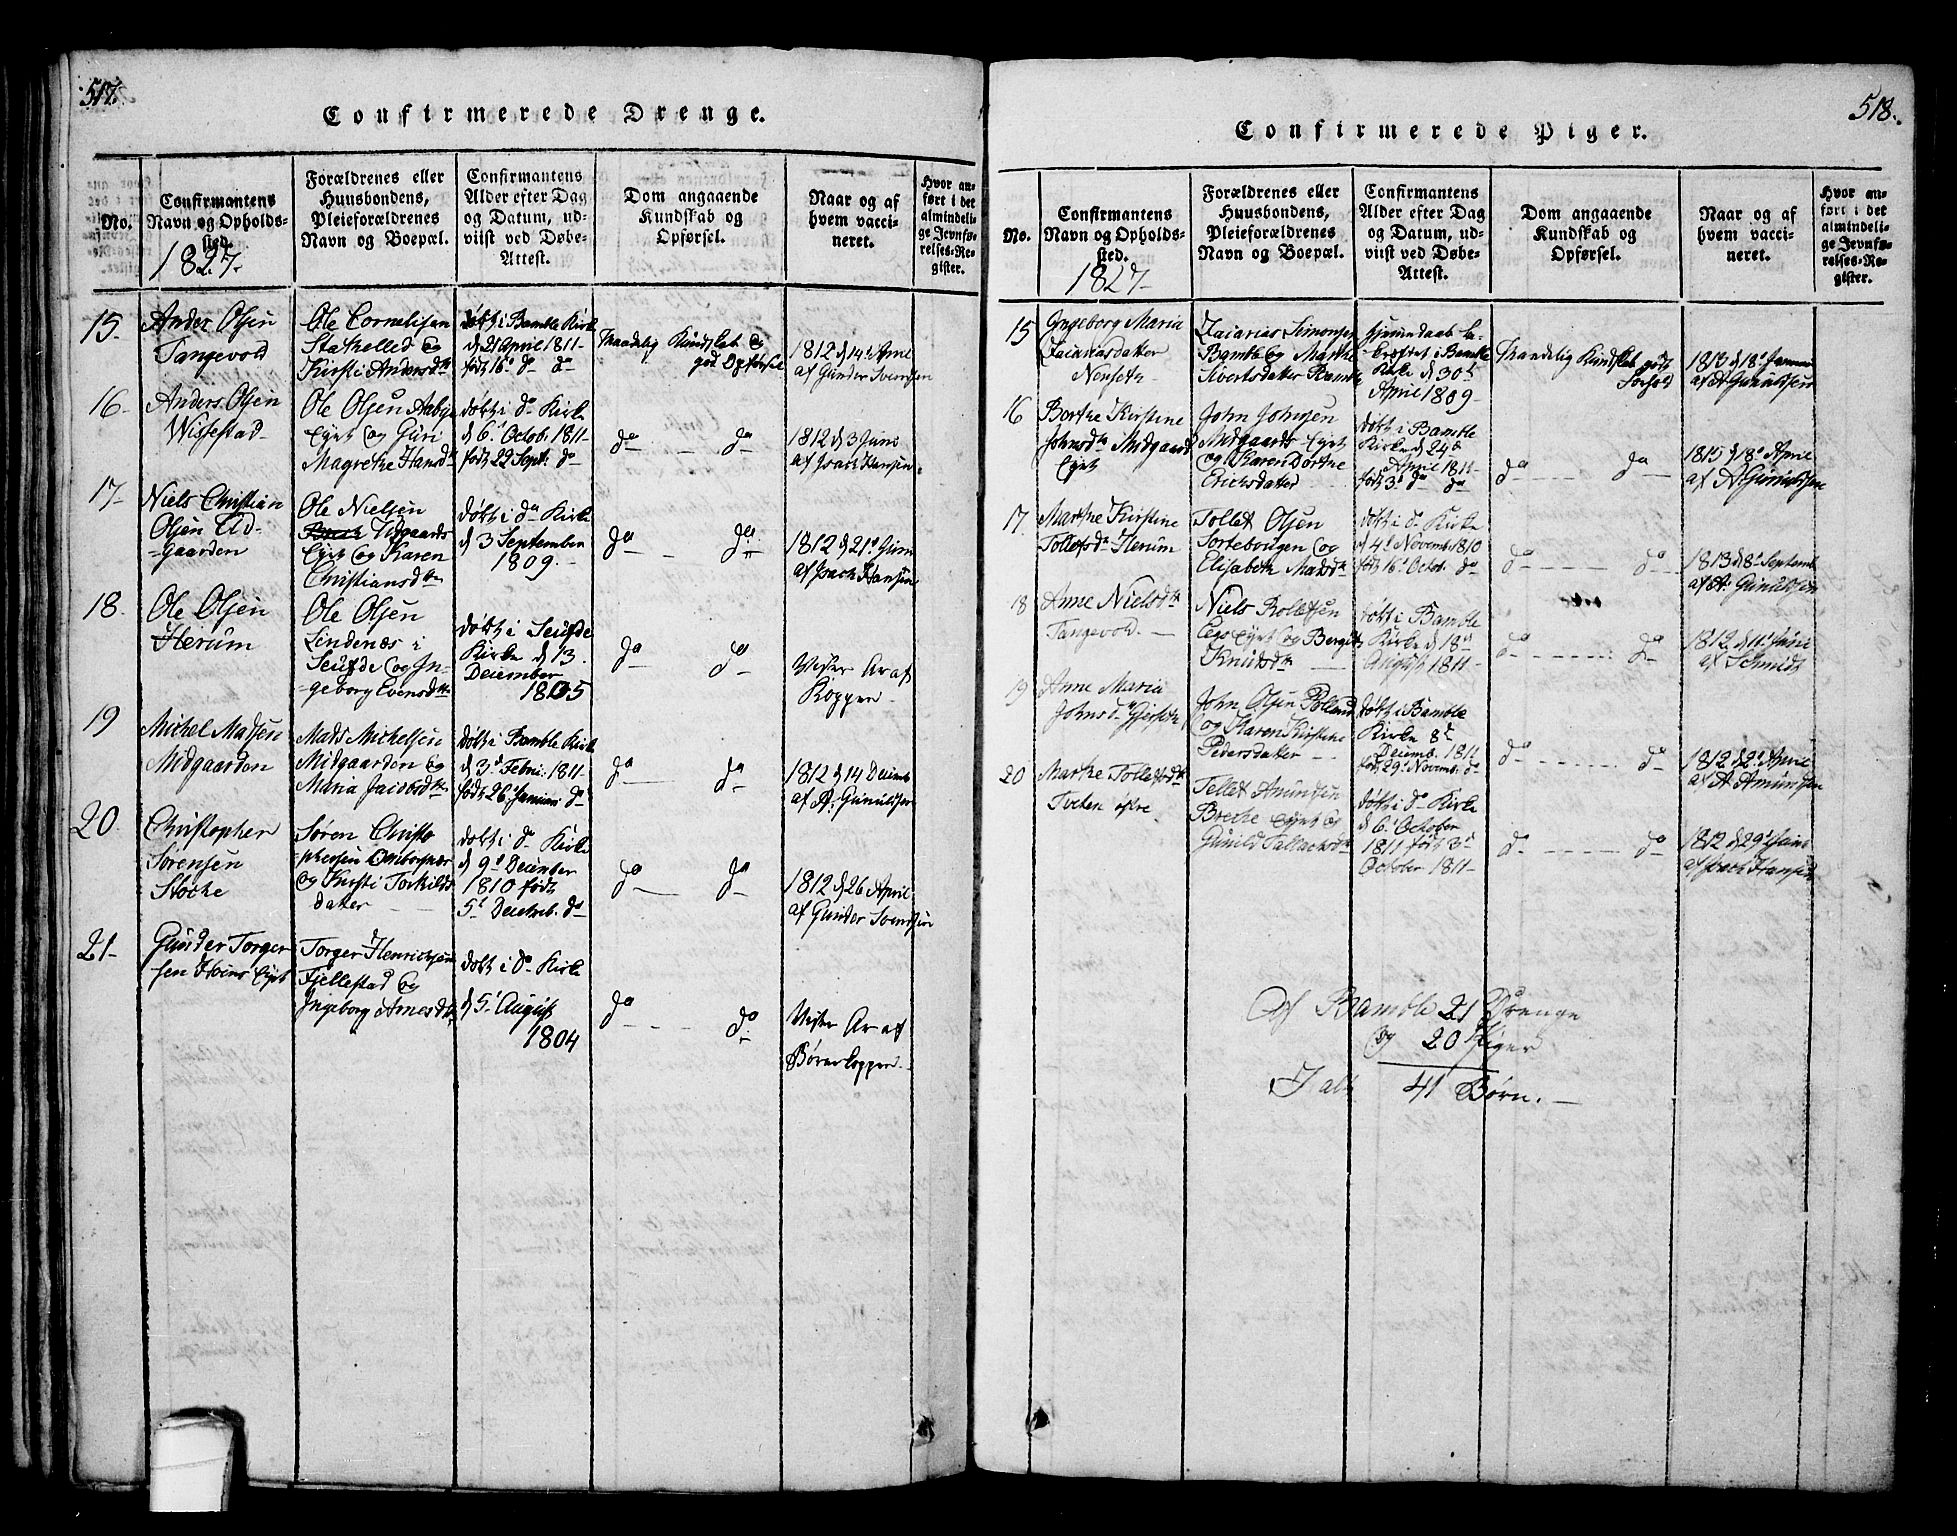 517.
Confirmerede Drenge.
No.
Confirmantens
Navn og Opholds-
sted.
1827.
Forældrenes eller
Huusbondens,
Pleieforældrenes
Navn og Boepæl.
Confirmantens
Alder efter Dag
og Datum, ud-
viist ved Døbe-
Attest.
Dom angaaende
Kundskab og
Opførsel.
Naar og af
hvem vacci-
neret.
Hvor an-
ført i det
almindeli-
ge Jevnfø-
relses-Re-
gister.
15.
Anders Olsen
Tangevold
Ole Cornelisen
Stathelled og
Kirsti Andersdtr
døbt i Bamble Kirke
d 21 April 1811-
født 16d do do
Kundskab og
god Opførsel
1812 d 14d April
af Gunder Svendsen
16-
Anders Olsen
Wissestad-
Ole Olsen
Eyet og Guri
Magrethe Hansdtr
døbt i do Kirke
d 6t Octob. 1811-
født 22 Sept. do
do - do
1812 d 3 Juni
af Isach Hansen
17-
Niels Christian
Olsen Ud-
-gaarden
Ole Nielsen
Udgaards
Eyet og Karen
Christiansdtr
døbt i do Kirke
d 3 September
1809.-
do do
1812 d 21d Juni
af Isach Hansen
18.
Ole Olsen
Herum
Ole Olsen
Lindenæs i
Seufde og In-
-geborg Evensdtr
døbt i Seufde
Kirke d 13.
December
1805
do do
Viser Ar af
Kopper-
19
Michel Madsen
Midgaarden
Mads Michelsen
Midgaarden og
Maria Jacobsdtr
døbt i Bamble Kirke
d 3d Febri. 1811-
født 26d Januari do
do do
1812 d 14 Decemb
af A. Gunulfsen
20.
Christopher
Sørensen
Stocke
Søren Christo
phersen
og Kirsti Torkilds
datter
døbt i do Kirke
d 9d December
1810 født
5t Decemb. do
do do
1812 d 26 April
af Gunder Svendsen
21-
Gunder Torger
sen Hvens Eyet
Torger Henrichsen
Fjellestad og
Ingeborg Arnesdtr
døbt i do Kirke
d 5t August
1804
do - do
Viser Ar af
Børnekopper.
518.
Confirmerede Piger.
No.
Confirmantens
Navn og Opholds-
sted.
1827-
Forældrenes eller
Huusbondens,
Pleieforældrenes
Navn og Boepæl.
Confirmantens
Alder efter Dag
og Datum, ud-
viist ved Døbe-
Attest.
Dom angaaende
Kundskab og
Opførsel.
Naar og af
hvem vacci-
neret.
Hvor an-
ført i det
almindeli-
ge Jevnfø-
relses-Re-
gister.
15
Ingeborg Maria
Zacariasdatter
Zacarias Simonsen
Bamble og Marthe
Sivertsdatter Bamble
Hjemmedaab be-
kræftet i Bamble
Kirke d 30t
April 1809-
Kundskab godt
Forhold
1813 d 18d Januar
af A Gunulfsen
16
Berthe Kirstine
Johnsdtr Midgaards
Eyet
John Johnsen
Midgaards Eyet
og Karen Dorthe
Erichsdatter
døbt i Bamble
Kirke d 24d
April 1811-
født 3d do do
do do
1815 d 18d April
af A Gunulfsen
17.
Marthe Kirstine
Tollefsdtr Herum
Tollef Olsen
Tortebougen og
Elisabeth Madsdtr
døbt i do Kirke
d 4d Novemb. 1810
født 16d Octob. do
do do
1813 d 8d Septemb
af A. Gunulfsen
18
Anne Nielsdtr
Tangevold.-
Niels Rollefsen
Eyet og Bergit
Knudsdtr
døbt i Bamble
Kirke d 18d
August 1811-
do do
1812 d 11d Juni
af Schmidt
19
Anne Maria
Johnsdtr
John Olsen
og Karen Kirstine
Pedersdatter
døbt i Bamble
Kirke 8d
Decemb. 1811
født 29d Novemb. do
do do
1812 d 2d April
af A Amundsen
20
Marthe Tollefsdtr
Tveten øfre.
Tellef Amundsen
Brecke Eyet og
Gunild Tallachsdtr
døbt i do Kirke
d 6t October
1811 født 3d
October 1811-
do do
1812 d 29d Juni
af Isach Hansen
Af Bamble 21 Drenge
og 20 Piger
I alt 41 Børn.-